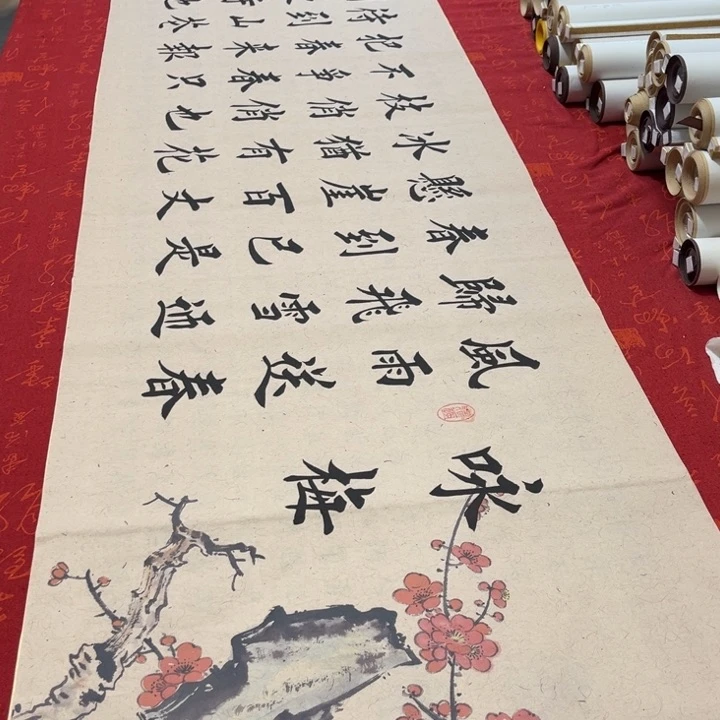 咏梅
風雨送春
歸飛雪迎
春到已是
懸崖百丈
冰猶有花
枝俏俏也
不爭春只
把春来報
待到山